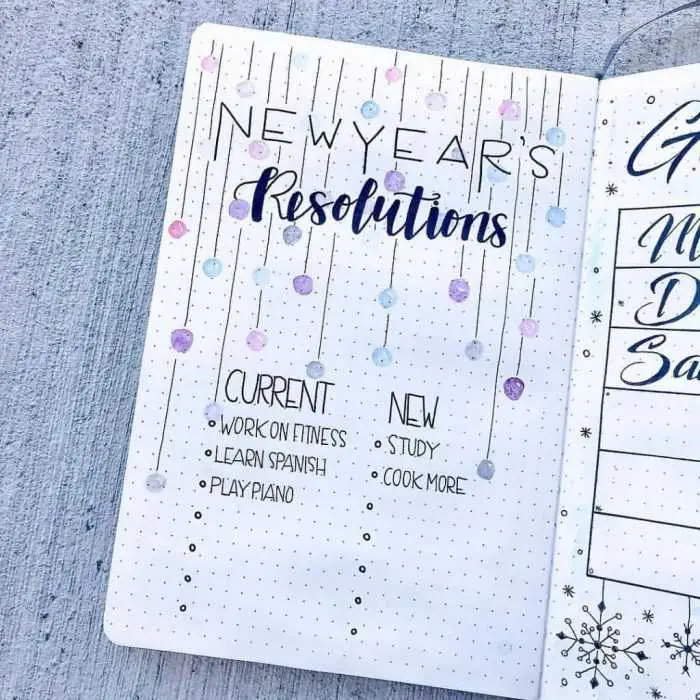 NEW YEAR'S
Resolutions
CURRENT
WORK ON FITNESS
LEARN SPANISH
PLAY PIANO
NEW
STUDY
COOK MORE
G
M
D
Sa